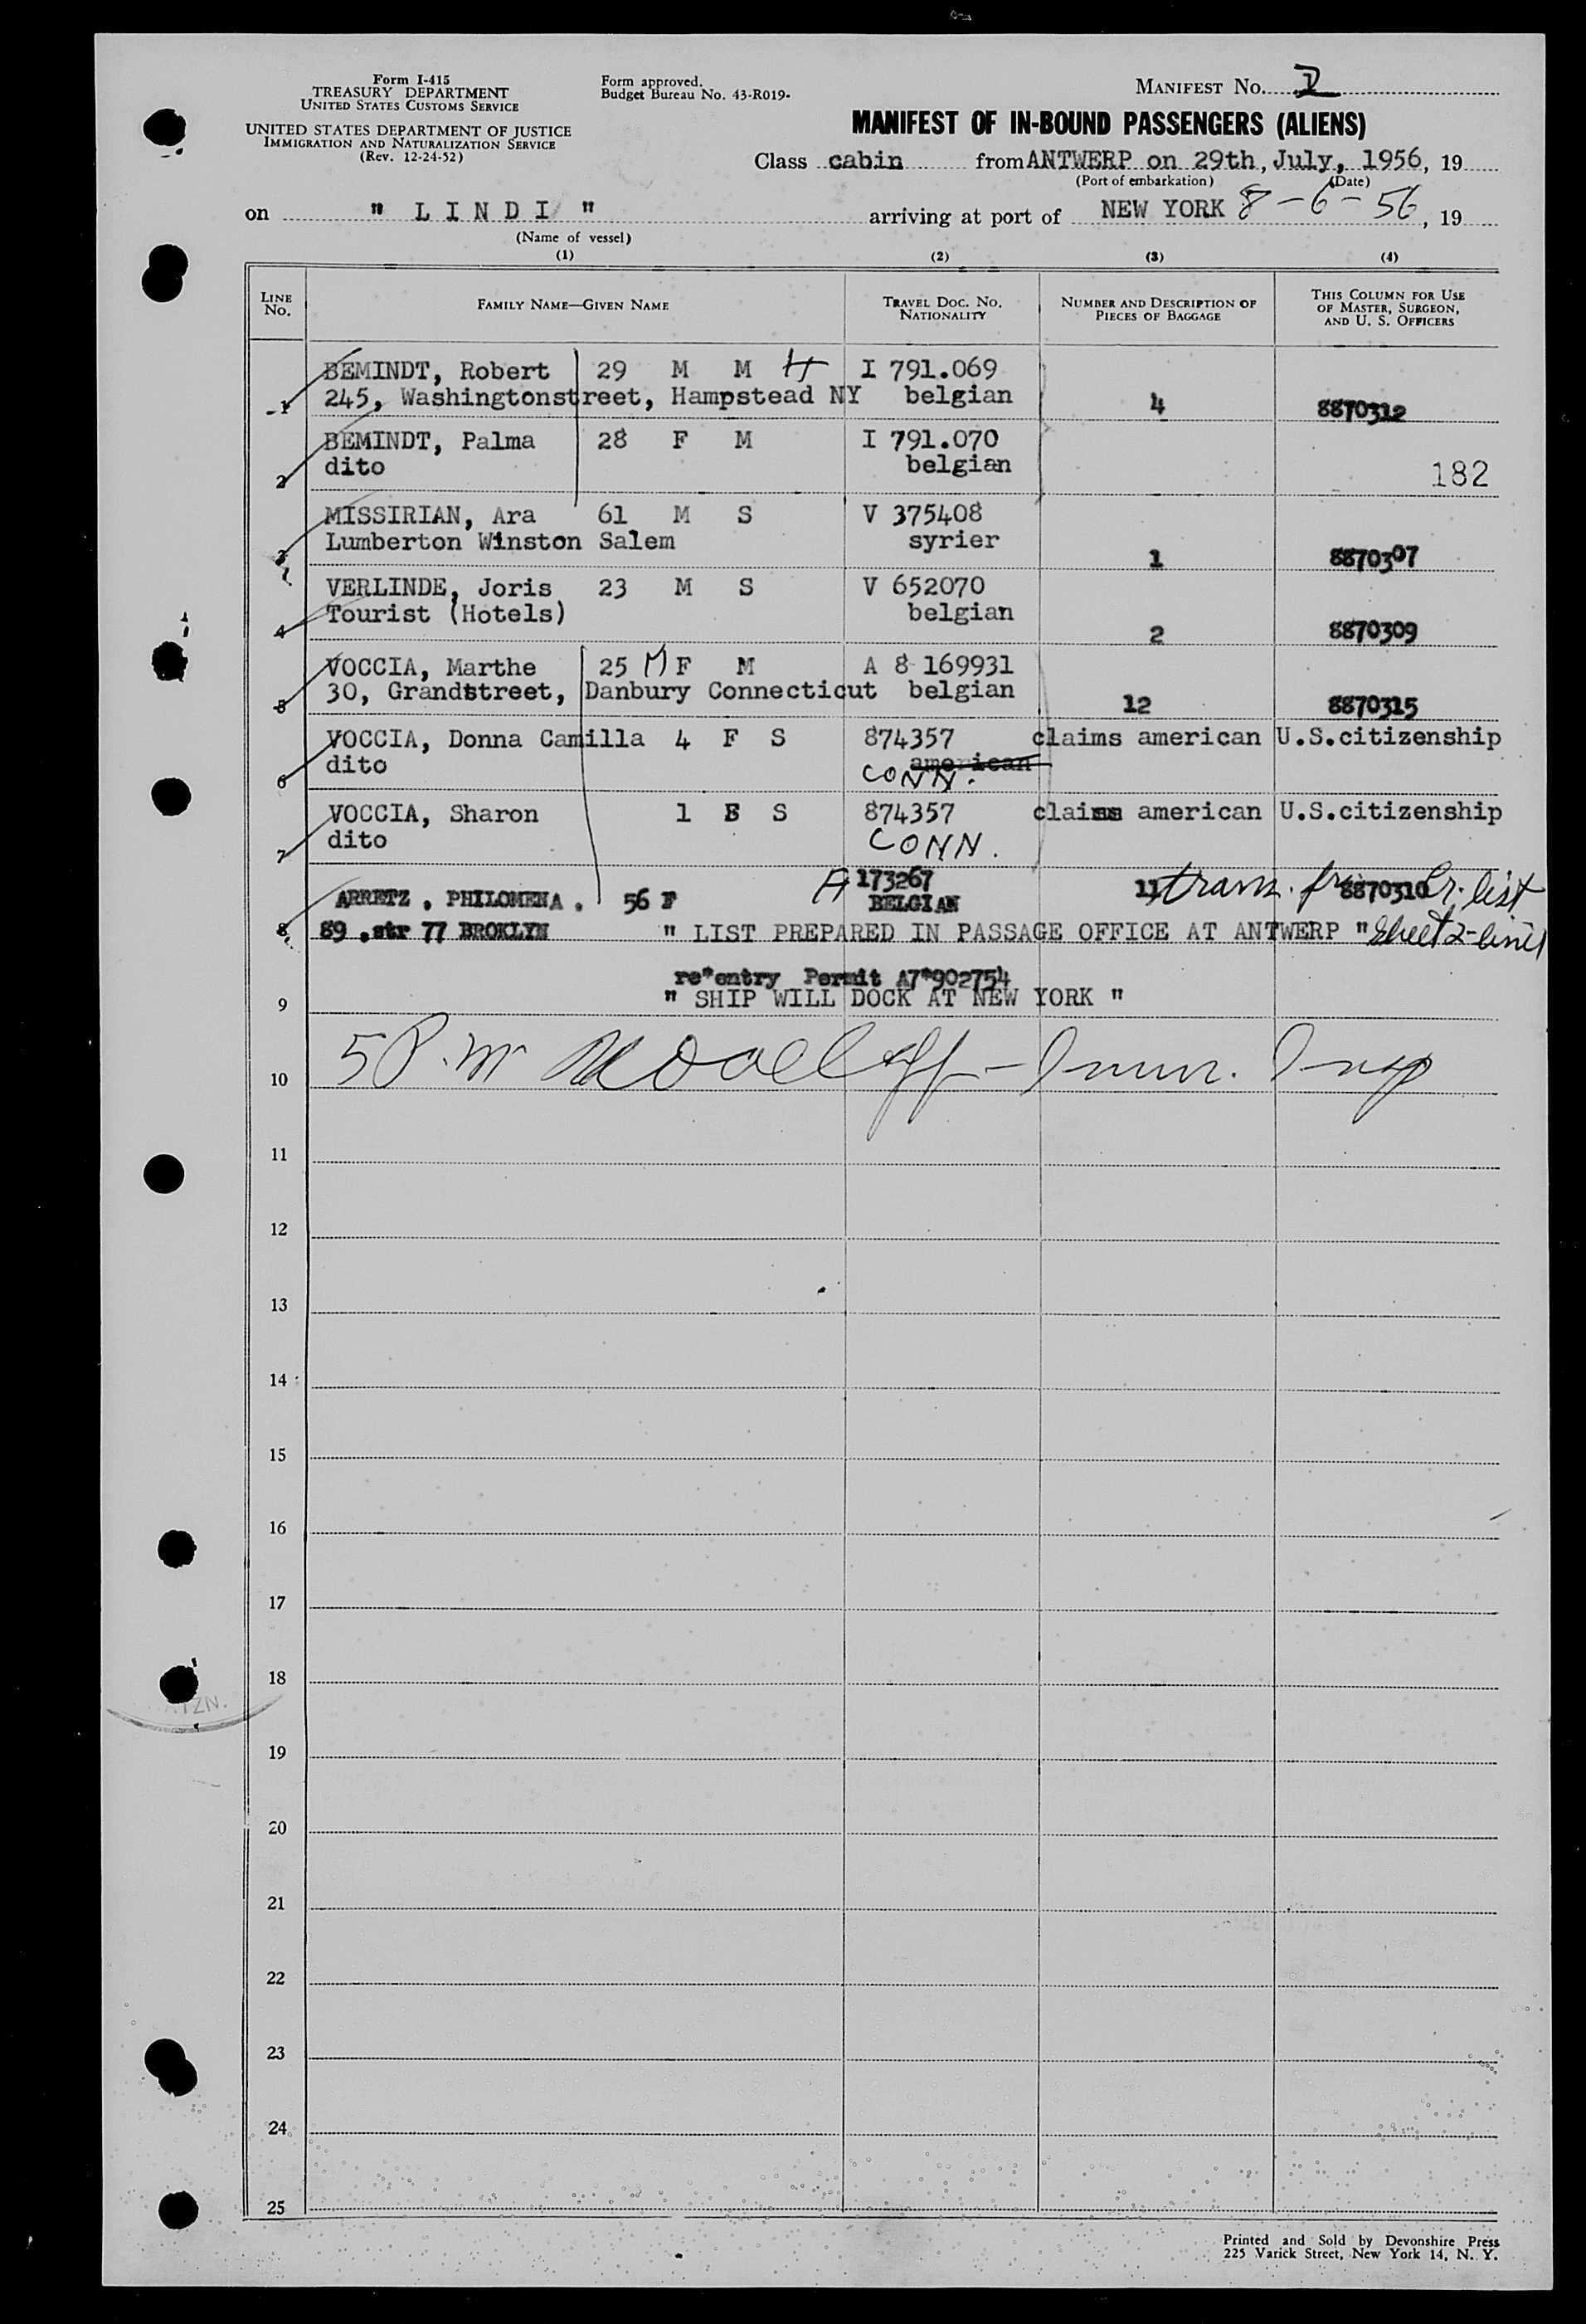 Form I-415
TREASURY DEPARTMENT
UNITED STATES CUSTOMS SERVICE
UNITED STATES DEPARTMENT OF JUSTICE
IMMIGRATION AND NATURALIZATION SERVICE
(Rev. 12-24-52)
Form approved.
Budget Bureau No. 43-R019-
MANIFEST No.
MANIFEST OF IN-BOUND PASSENGERS (ALIENS)
Class cabin from ANTWERP on 29th, July, 1956, 19
(Port of embarkation) (Date)
on " L I N D I " arriving at port of NEW YORK 8-6-56, 19
(Name of vessel)
(1) (2) (3) (4)
LINE No. FAMILY NAME—GIVEN NAME TRAVEL DOC. NO. NATIONALITY NUMBER AND DESCRIPTION OF PIECES OF BAGGAGE THIS COLUMN FOR USE OF MASTER, SURGEON, AND U. S. OFFICERS
BEMINDT, Robert 29 M M I 791.069
1 245, Washingtonstreet, Hampstead NY belgian 4 8870312
BEMINDT, Palma 28 F M I 791.070
2 dito belgian 182
MISSIRIAN, Ara 61 M S V 375408
3 Lumberton Winston Salem syrier 1 8870307
VERLINDE, Joris 23 M S V 652070
4 Tourist (Hotels) belgian 2 8870309
VOCCIA, Marthe 25 M F M A 8 169931
5 30, Grandstreet, Danbury Connecticut belgian 12 8870315
VOCCIA, Donna Camilla 4 F S 874357 claims american U.S.citizenship
6 dito american CONN.
VOCCIA, Sharon 1 F S 874357 claims american U.S.citizenship
7 dito CONN.
ARRETZ . PHILOMENA . 56 F A 173267 BELGIAN 11 trans. fr 8870310 Cr. list
8 89 .str 77 BROKLYN " LIST PREPARED IN PASSAGE OFFICE AT ANTWERP " Sheet 2-line 1
re*entry Permit A7*902754
9 " SHIP WILL DOCK AT NEW YORK "
10 5 P.M Imm. Insp
11
12
13
14
15
16
17
18
19
20
21
22
23
24
25
Printed and Sold by Devonshire Press
225 Varick Street, New York 14, N. Y.